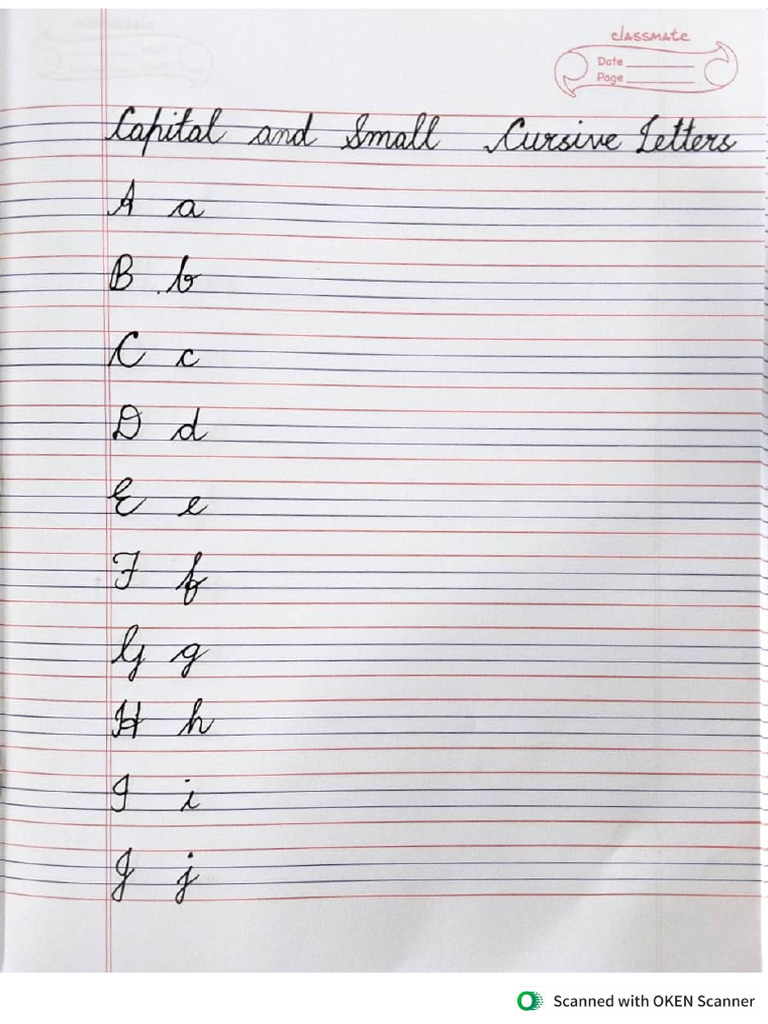 classmate
Date
Page
Capital and Small Cursive Letters
A a
B b
C c
D d
E e
F f
G g
H h
I i
J j
Scanned with OKEN Scanner